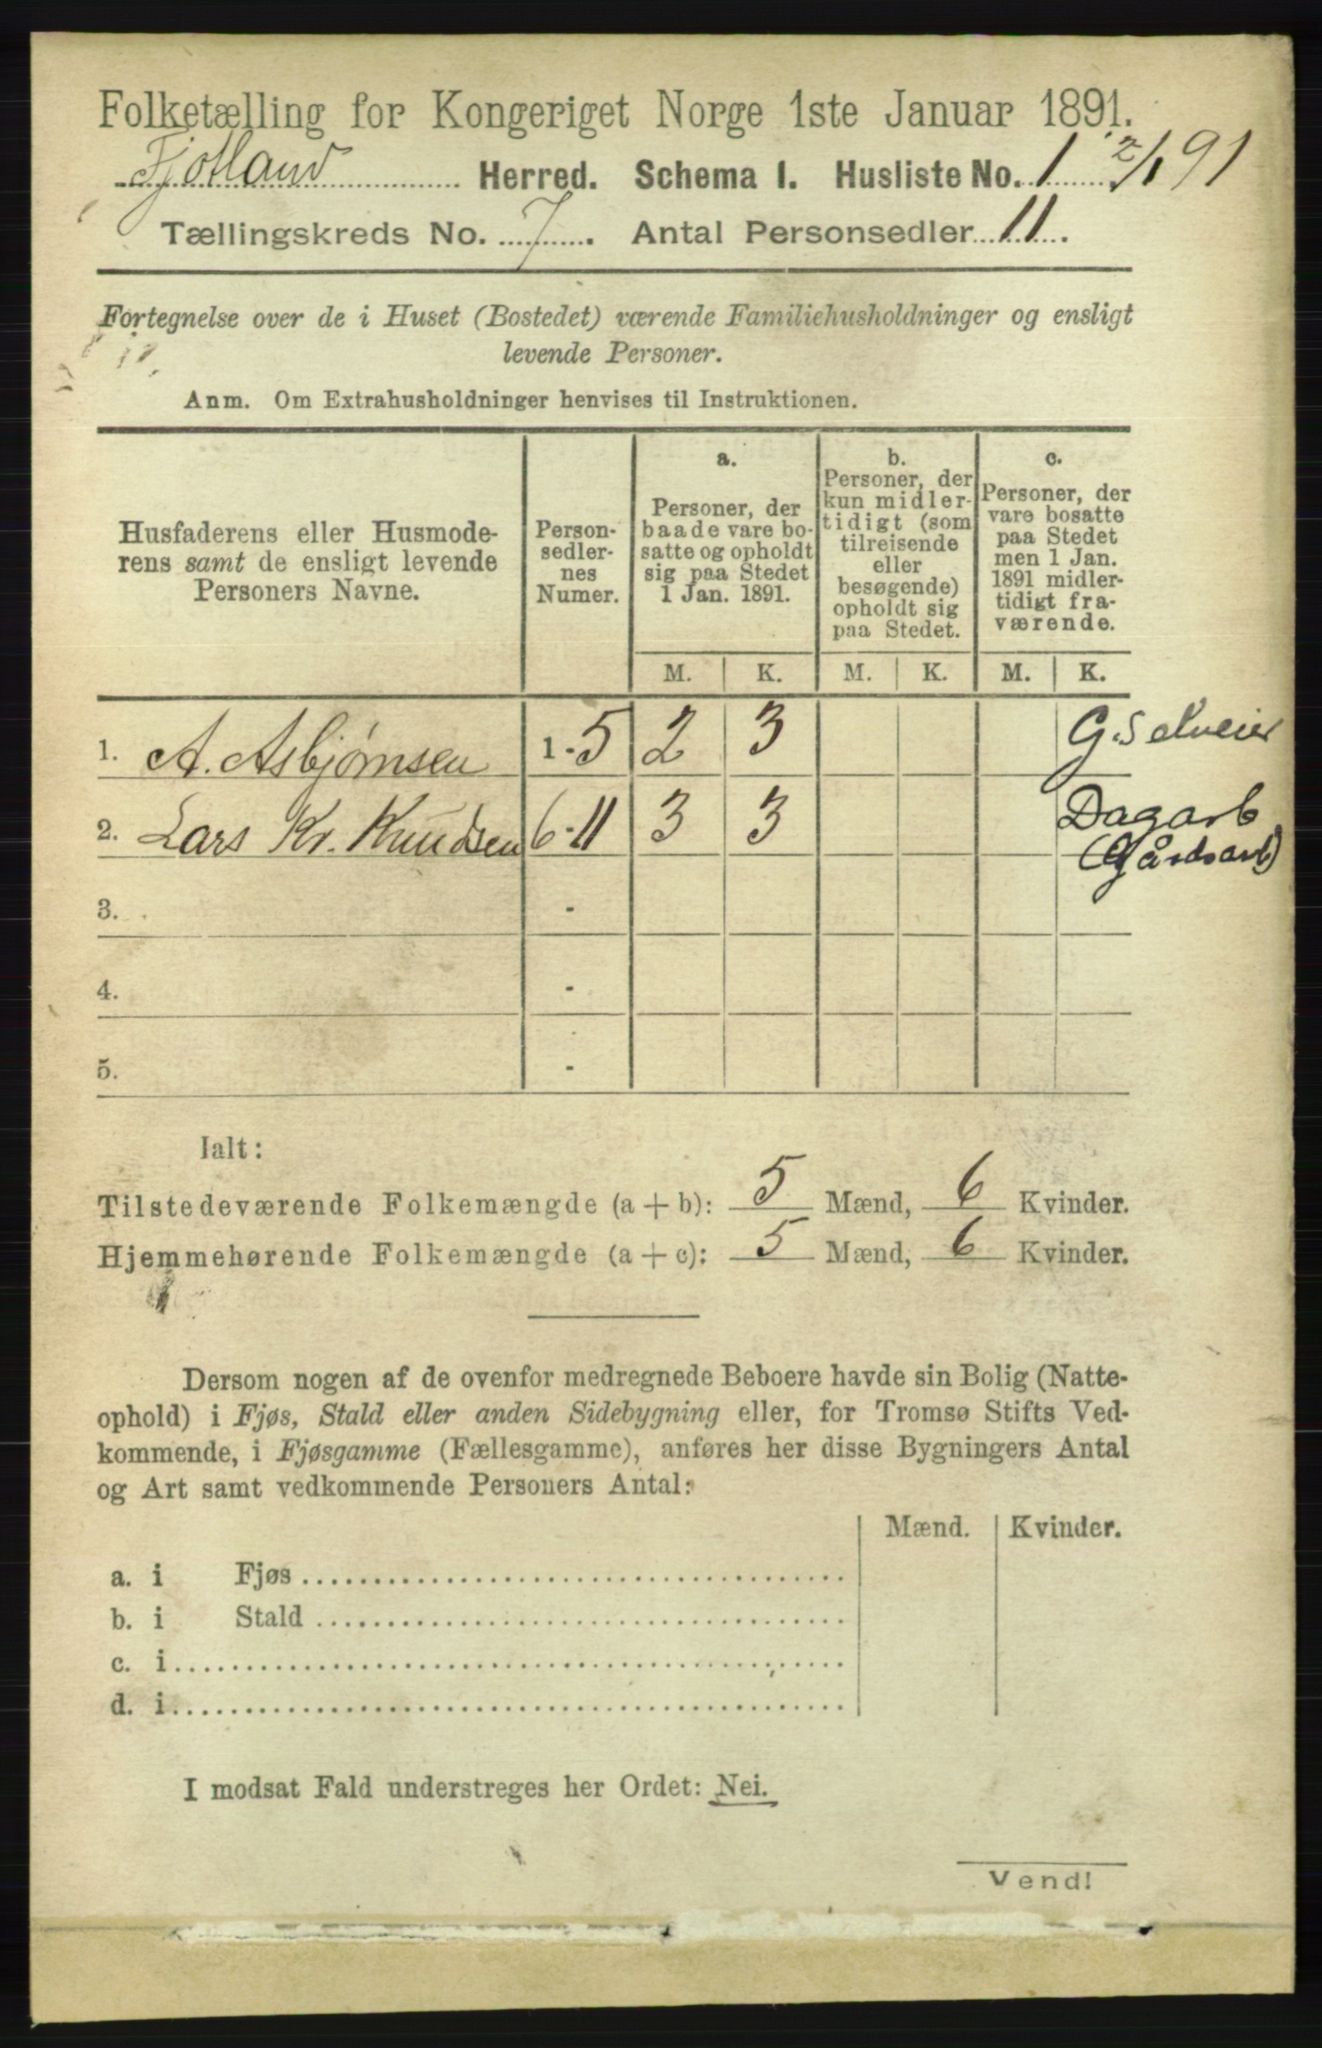 Folketælling for Kongeriget Norge 1ste Januar 1891.
Fjotland Herred. Schema 1. Husliste No. 1 2/1 91
Tællingskreds No. 7. Antal Personsedler 11.
Fortegnelse over de i Huset (Bostedet) værende Familiehusholdninger og ensligt
levende Personer.
Anm. Om Extrahusholdninger henvises til Instruktionen.
Husfaderens eller Husmode-
rens samt de ensligt levende
Personers Navne.
Person-
sedler-
nes
Numer.
a.
Personer, der
baade vare bo-
satte og opholdt
sig paa Stedet
1 Jan. 1891.
b.
Personer, der
kun midler-
tidigt (som
tilreisende
eller
besøgende)
opholdt sig
paa Stedet.
c.
Personer, der
vare bosatte
paa Stedet
men 1 Jan.
1891 midler-
tidigt fra-
værende.
M. K. M. K. M. K.
1. A. Asbjørnsen 1 - 5 2 3 G.Selveier
2. Lars Kr. Knudsen 6 - 11 3 3 Dagarb
(Gårdsarb)
3. -
4. -
5. -
Ialt:
Tilstedeværende Folkemængde (a + b): 5 Mænd, 6 Kvinder.
Hjemmehørende Folkemængde (a + c): 5 Mænd, 6 Kvinder.
Dersom nogen af de ovenfor medregnede Beboere havde sin Bolig (Natte-
ophold) i Fjøs, Stald eller anden Sidebygning eller, for Tromsø Stifts Ved-
kommende, i Fjøsgamme (Fællesgamme), anføres her disse Bygningers Antal
og Art samt vedkommende Personers Antal:
Mænd. Kvinder.
a. i Fjøs
b. i Stald
c. i
d. i
I modsat Fald understreges her Ordet: Nei.
Vend!